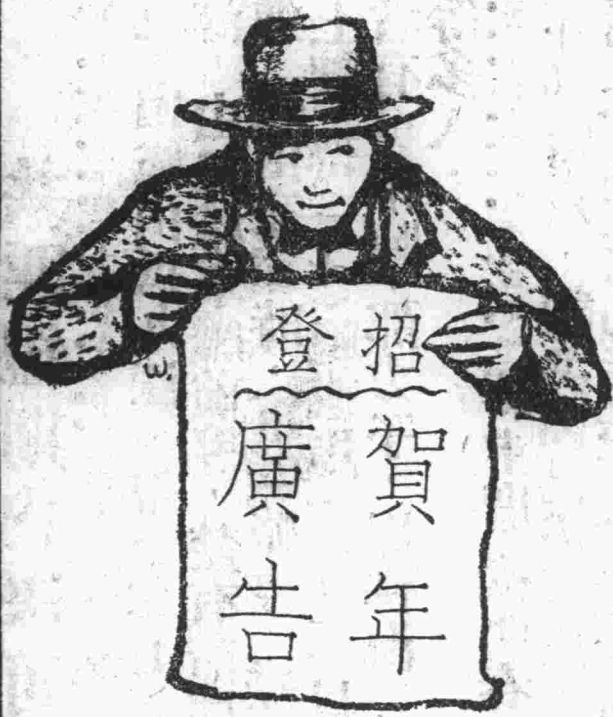 招登
賀年
廣告
ω.